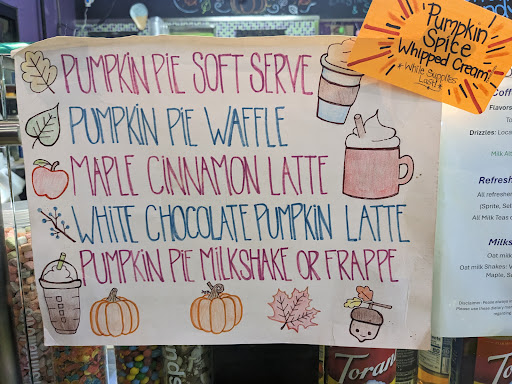 Pumpkin
Spice
Whipped Cream!
*While Supplies
Last!*
PUMPKIN PIE SOFT SERVE
PUMPKIN PIE WAFFLE
MAPLE CINNAMON LATTE
WHITE CHOCOLATE PUMPKIN LATTE
PUMPKIN PIE MILKSHAKE OR FRAPPE
Flavors
Drizzles:
Milk
Refresh
All refreshe
(Sprite,
All Milk Teas
Milks
Oat milk
Oat milk Shakes:
Maple,
Disclaimer: Please
Torani
Torani